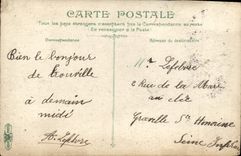 CARTE POSTALE
Tous les pays étrangers n'acceptent pas la Correspondance au recto
Se renseigner à la Poste
Correspondance
Adresse du destinataire
Bien le bonjour
de Trouville
à demain
midi
A. Lefebvre
Mr Lefebvre
2 Rue de la Mare
au clerc
Graville Ste Honorine
Seine Infre